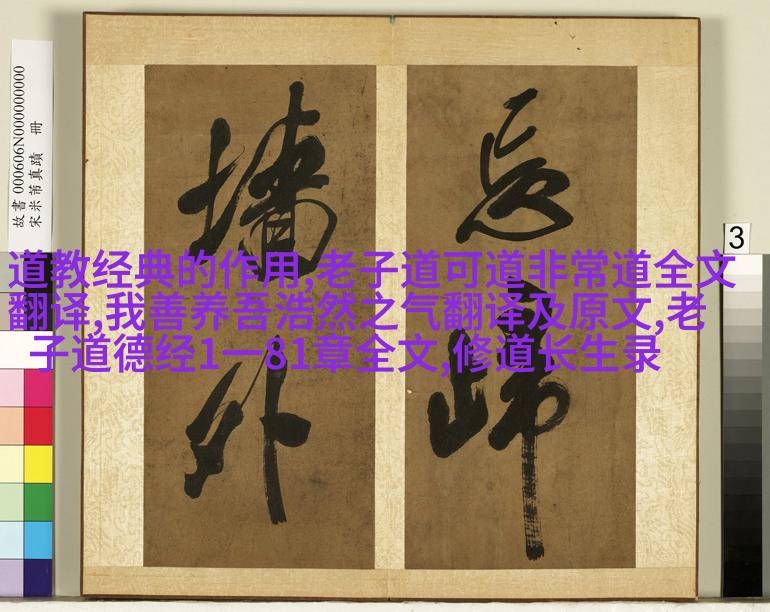 道教经典的作用,老子道可道非常道全文
翻译,我善养吾浩然之气翻译及原文,老
子道德经1一81章全文,修道长生录
忘歸
墻外
故書 000606N000000000
宋米芾真蹟 冊
3